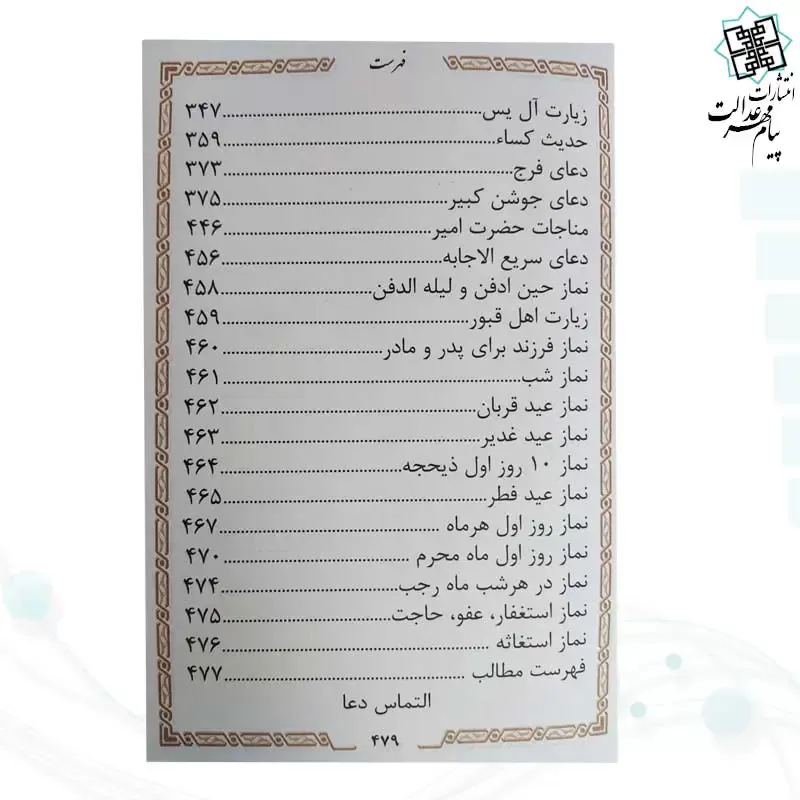 انتشارات
پیام مهر عدالت
فهرست
زیارت آل یس................................................۳۴۷
حدیث کساء................................................۳۵۹
دعای فرج................................................۳۷۳
دعای جوشن کبیر................................................۳۷۵
مناجات حضرت امیر................................................۴۴۶
دعای سریع الاجابه................................................۴۵۶
نماز حین ادفن و لیله الدفن..............................۴۵۸
زیارت اهل قبور................................................۴۵۹
نماز فرزند برای پدر و مادر..............................۴۶۰
نماز شب................................................۴۶۱
نماز عید قربان................................................۴۶۲
نماز عید غدیر................................................۴۶۳
نماز ۱۰ روز اول ذیحجه..............................۴۶۴
نماز عید فطر................................................۴۶۵
نماز روز اول هرماه ..............................۴۶۷
نماز روز اول ماه محرم ..............................۴۷۰
نماز در هرشب ماه رجب..............................۴۷۴
نماز استغفار، عفو، حاجت..............................۴۷۵
نماز استغاثه ................................................۴۷۶
فهرست مطالب ................................................۴۷۷
التماس دعا
۴۷۹